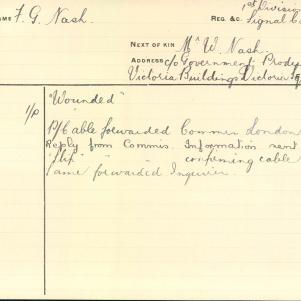 1st Division
NAME F. G. Nash. REG. &c. Signal C
NEXT OF KIN Mr W. Nash.
ADDRESS c/o Government Produ
Victoria Buildings Victoria Sq
"Wounded"
P/Cable forwarded Commr London
Reply from Commis. Information sent
" " confirming cable
same forwarded Inquirer.